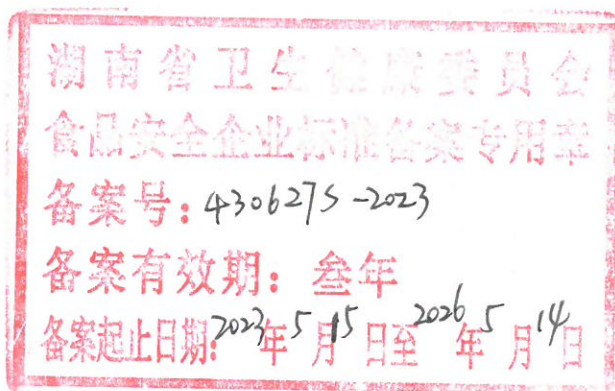 湖南省卫生健康委员会
食品安全企业标准备案专用章
备案号：430627S-2023
备案有效期：叁年
备案起止日期：2023年5月15日至2026年5月14日